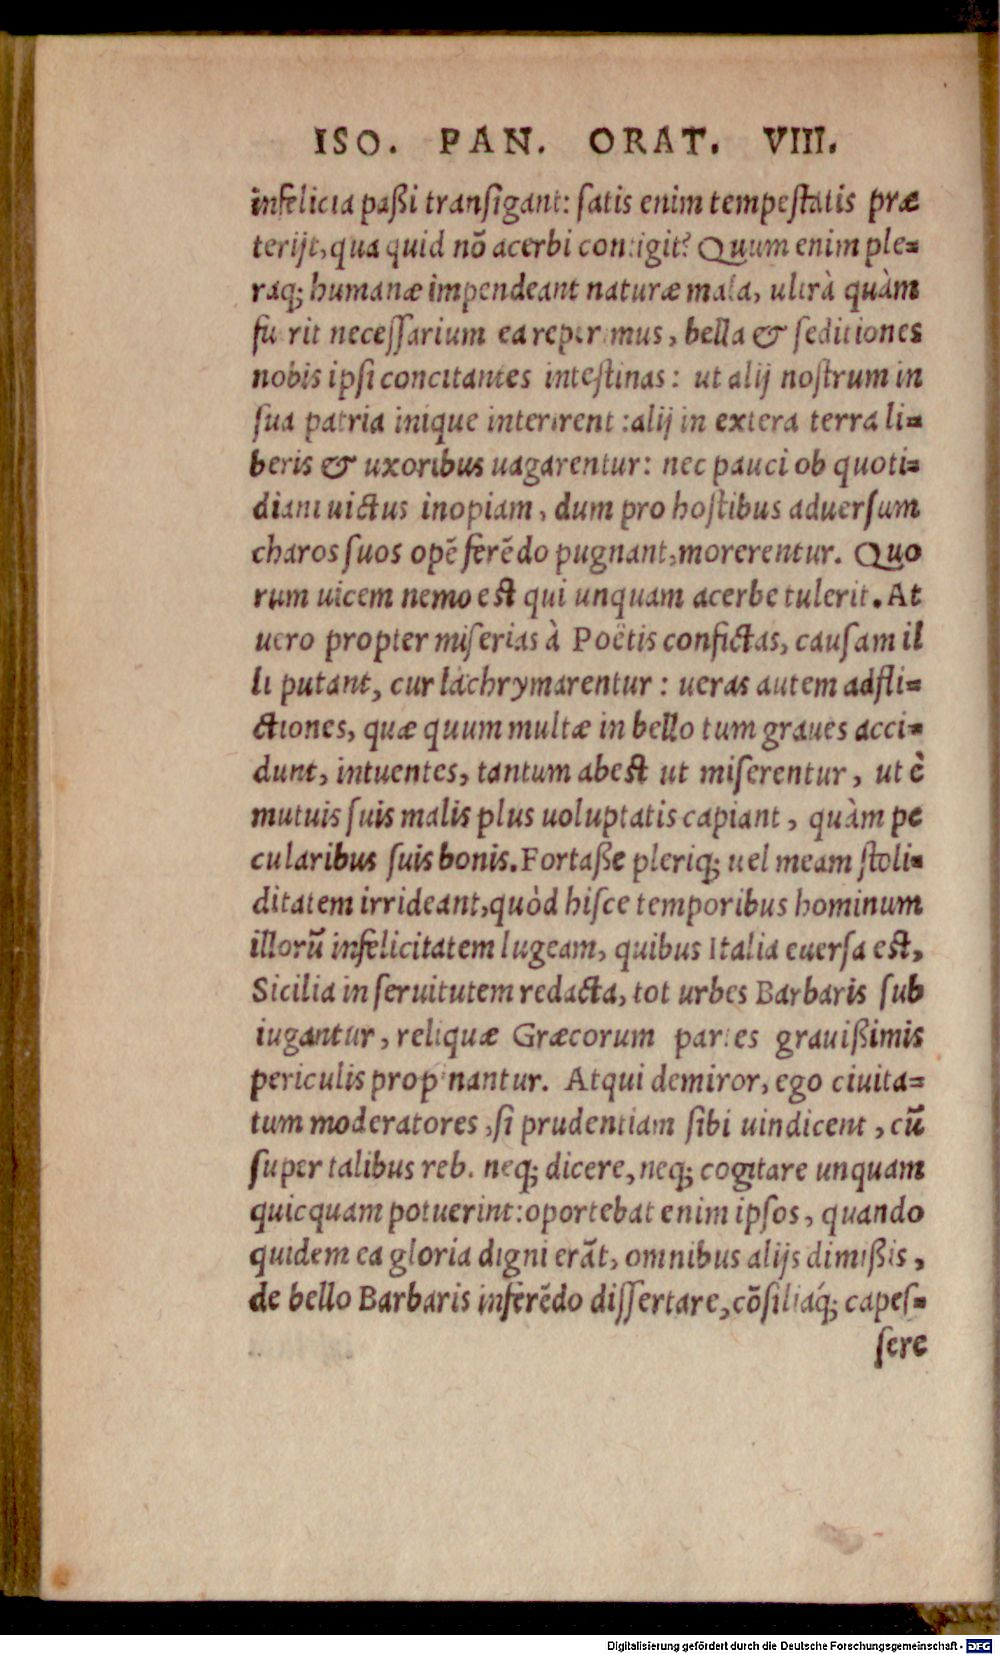 ISO. PAN. ORAT. VIII.
infelicia paßi transigant: satis enim tempestatis præ
terijt, qua quid nō acerbi contigit? Quum enim ple=
raq; humanæ impendeant naturæ mala, ultrà quàm
fu rit necessarium ea reperimus, bella & seditiones
nobis ipsi concitantes intestinas: ut alij nostrum in
sua patria inique interirent: alij in extera terra li=
beris & uxoribus uagarentur: nec pauci ob quoti=
diani uictus inopiam, dum pro hostibus aduersum
charos suos opē ferēdo pugnant, morerentur. Quo
rum uicem nemo est qui unquam acerbe tulerit. At
uero propter miserias à Poëtis confictas, causam il
li putant, cur lachrymarentur: ueras autem adfli=
ctiones, quæ quum multæ in bello tum graues acci=
dunt, intuentes, tantum abest ut miserentur, ut è
mutuis suis malis plus uoluptatis capiant, quàm pe
cularibus suis bonis. Fortaße pleriq; uel meam stoli=
ditatem irrideant, quòd hisce temporibus hominum
illorū infelicitatem lugeam, quibus Italia euersa est,
Sicilia in seruitutem redacta, tot urbes Barbaris sub
iugantur, reliquæ Græcorum partes grauißimis
periculis prop nantur. Atqui demiror, ego ciuita=
tum moderatores, si prudentiam sibi uindicent, cū
super talibus reb. neq; dicere, neq; cogitare unquam
quicquam potuerint: oportebat enim ipsos, quando
quidem ea gloria digni erāt, omnibus alijs dimißis,
de bello Barbaris inferēdo dissertare, cōsiliáq; capes=
sere
Digitalisierung gefördert durch die Deutsche Forschungsgemeinschaft - DFG